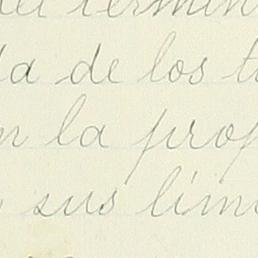 del termin
da de los t
n la prop
sus lími